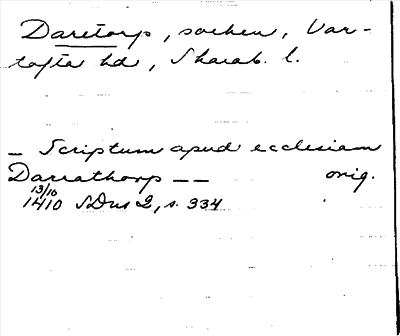 Daretorp, socken, Var-
tofta hd, Skarab. l.
— Scriptum apud ecclesiam
Darrathorp — — orig.
13/10
1410 SDns 2, s. 334